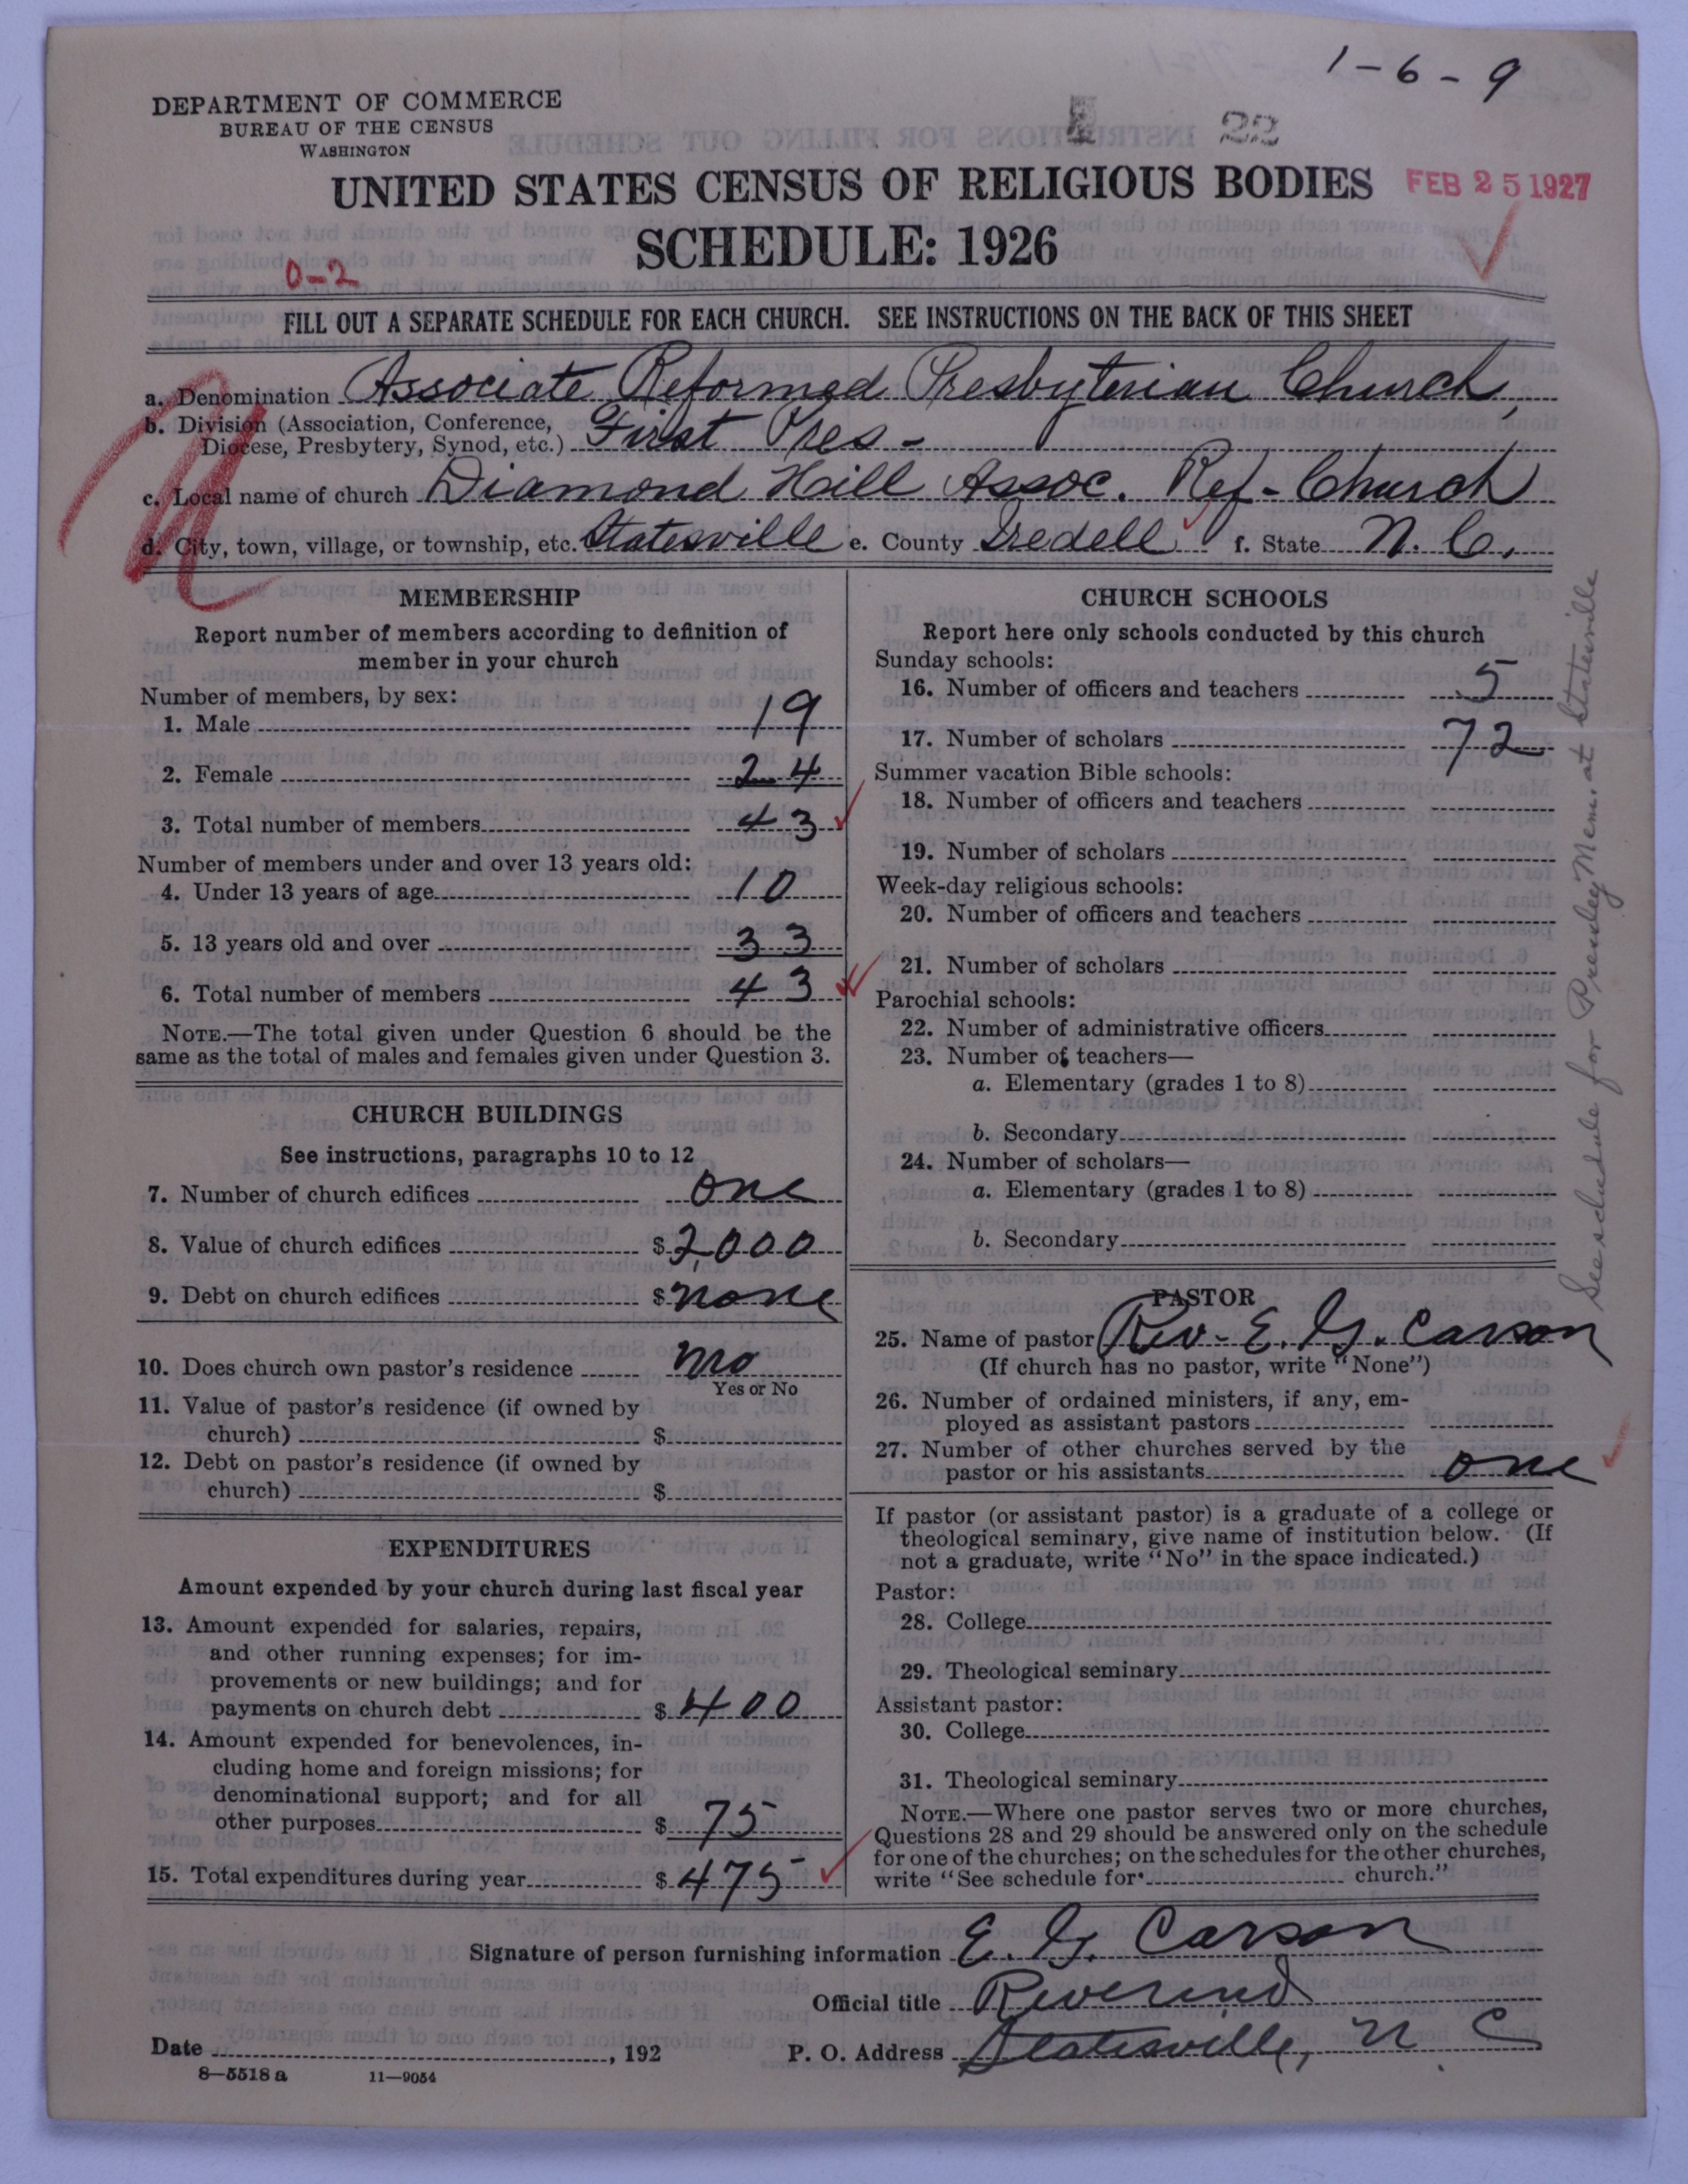 1-6-9
DEPARTMENT OF COMMERCE
BUREAU OF THE CENSUS
WASHINGTON
22
UNITED STATES CENSUS OF RELIGIOUS BODIES
FEB 25 1927
SCHEDULE: 1926
0-2
FILL OUT A SEPARATE SCHEDULE FOR EACH CHURCH. SEE INSTRUCTIONS ON THE BACK OF THIS SHEET
a. Denomination Associate Reformed Presbyterian Church,
b. Division (Association, Conference,
Diocese, Presbytery, Synod, etc.) First Pres-
c. Local name of church Diamond Hill Assoc. Ref- Church
d. City, town, village, or township, etc. Statesville e. County Iredell f. State N. C.
MEMBERSHIP
Report number of members according to definition of
member in your church
Number of members, by sex:
1. Male 19
2. Female 24
3. Total number of members 43
Number of members under and over 13 years old:
4. Under 13 years of age 10
5. 13 years old and over 33
6. Total number of members 43
NOTE.—The total given under Question 6 should be the
same as the total of males and females given under Question 3.
CHURCH BUILDINGS
See instructions, paragraphs 10 to 12
7. Number of church edifices one
8. Value of church edifices $ 2,000
9. Debt on church edifices $ none
10. Does church own pastor's residence no
Yes or No
11. Value of pastor's residence (if owned by
church) $
12. Debt on pastor's residence (if owned by
church) $
EXPENDITURES
Amount expended by your church during last fiscal year
13. Amount expended for salaries, repairs,
and other running expenses; for im-
provements or new buildings; and for
payments on church debt $ 400
14. Amount expended for benevolences, in-
cluding home and foreign missions; for
denominational support; and for all
other purposes $ 75
15. Total expenditures during year $ 475
CHURCH SCHOOLS
Report here only schools conducted by this church
Sunday schools:
16. Number of officers and teachers 5
17. Number of scholars 72
Summer vacation Bible schools:
18. Number of officers and teachers
19. Number of scholars
Week-day religious schools:
20. Number of officers and teachers
21. Number of scholars
Parochial schools:
22. Number of administrative officers
23. Number of teachers—
a. Elementary (grades 1 to 8)
b. Secondary
24. Number of scholars—
a. Elementary (grades 1 to 8)
b. Secondary
PASTOR
25. Name of pastor Rev. E. G. Carson
(If church has no pastor, write "None")
26. Number of ordained ministers, if any, em-
ployed as assistant pastors
27. Number of other churches served by the
pastor or his assistants one
If pastor (or assistant pastor) is a graduate of a college or
theological seminary, give name of institution below. (If
not a graduate, write "No" in the space indicated.)
Pastor:
28. College
29. Theological seminary
Assistant pastor:
30. College
31. Theological seminary
NOTE.—Where one pastor serves two or more churches,
Questions 28 and 29 should be answered only on the schedule
for one of the churches; on the schedules for the other churches,
write "See schedule for church."
See schedule for Pressley Mem. at Statesville
Signature of person furnishing information E. G. Carson
Official title Reverend
Date , 192
P. O. Address Statesville, N. C
8—5518 a 11—9054